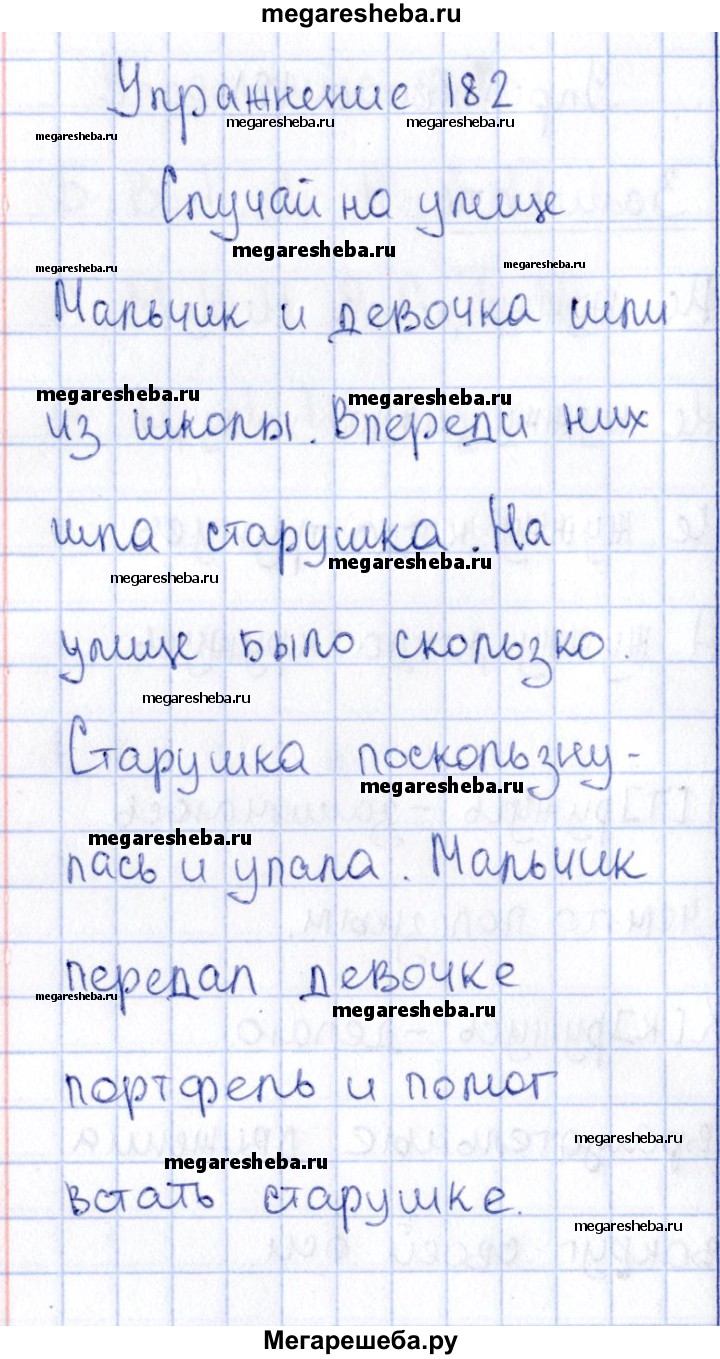 megaresheba.ru
Упражнение 182
megaresheba.ru megaresheba.ru megaresheba.ru
Случай на улице
megaresheba.ru
megaresheba.ru megaresheba.ru
Мальчик и девочка шли
megaresheba.ru megaresheba.ru
из школы. Впереди них
шла старушка. На
megaresheba.ru megaresheba.ru
улице было скользко.
megaresheba.ru
Старушка поскользну-
megaresheba.ru
megaresheba.ru
лась и упала. Мальчик
передал девочке
megaresheba.ru megaresheba.ru
портфель и помог
megaresheba.ru
megaresheba.ru
встать старушке.
megaresheba.ru
Мегарешеба.ру